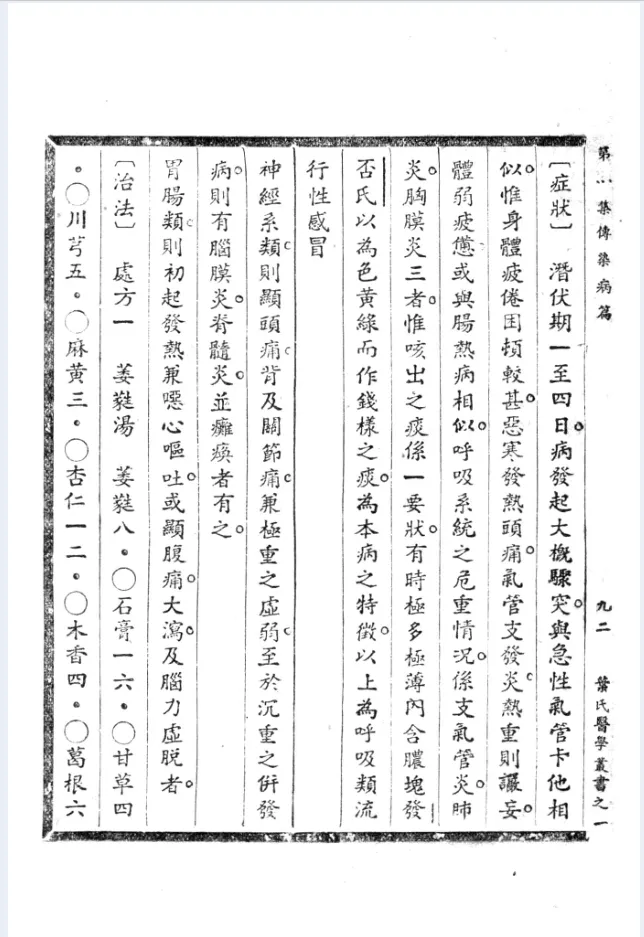 第一集傳染病篇　九二　葉氏醫學叢書之一
〔症狀〕　潛伏期一至四日。病發起大概驟突。與急性氣管卡他相
似。惟身體疲倦困頓較甚。惡寒發熱頭痛。氣管支發炎。熱重則譫妄。
體弱疲憊或與腸熱病相似。呼吸系統之危重情況。係支氣管炎。肺
炎。胸膜炎三者。惟咳出之痰係一要狀。有時極多極薄內含膿塊發
否氏以為色黃綠而作錢樣之痰。為本病之特徵。以上為呼吸類流
行性感冒
神經系類。則顯頭痛。背及關節痛。兼極重之虛弱。至於沉重之併發
病。則有腦膜炎。脊髓炎。並癱瘓者有之。
胃腸類。則初起發熱兼噁心嘔吐。或顯腹痛。大瀉。及腦力虛脫者。
〔治法〕　處方一　姜蕤湯　姜蕤八・〇石膏一六・〇甘草四
・〇川芎五・〇麻黃三・〇杏仁一二・〇木香四・〇葛根六